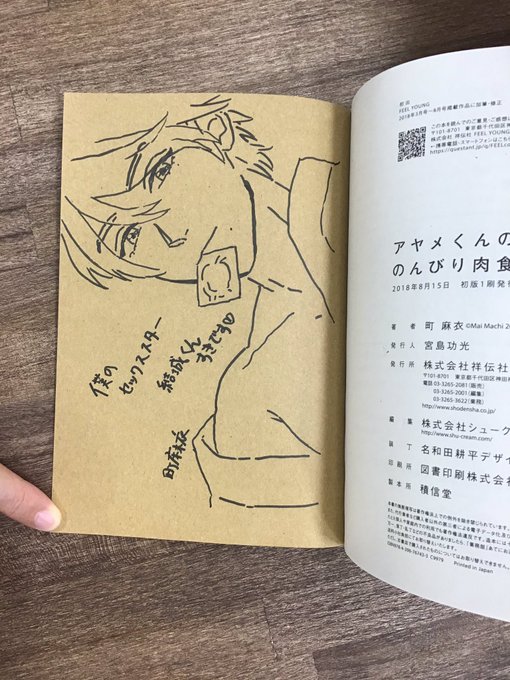 僕の
セックススター
結城くん
すきです♡
町麻衣
初出
FEEL YOUNG
2018年3月号〜8月号掲載作品に加筆・修正
この本を読んでのご意見・ご感想
〒101-8701 東京都千代田区神田
株式会社 祥伝社 FEEL YOUNG
アヤメくんの
のんびり肉食
2018年8月15日 初版1刷発
著者 町 麻衣 ©Mai Machi 2
発行人 宮島功光
発行所 株式会社祥伝社
〒101-8701 東京都千代田区神田
電話 03-3265-2081(販売)
03-3265-2001(編集)
03-3265-3622(業務)
http://www.shodensha.co.jp/
編集 株式会社シューク
http://www.shu-cream.com/
装丁 名和田耕平デザイ
印刷所 図書印刷株式会社
製本所 積信堂
Printed in Japan